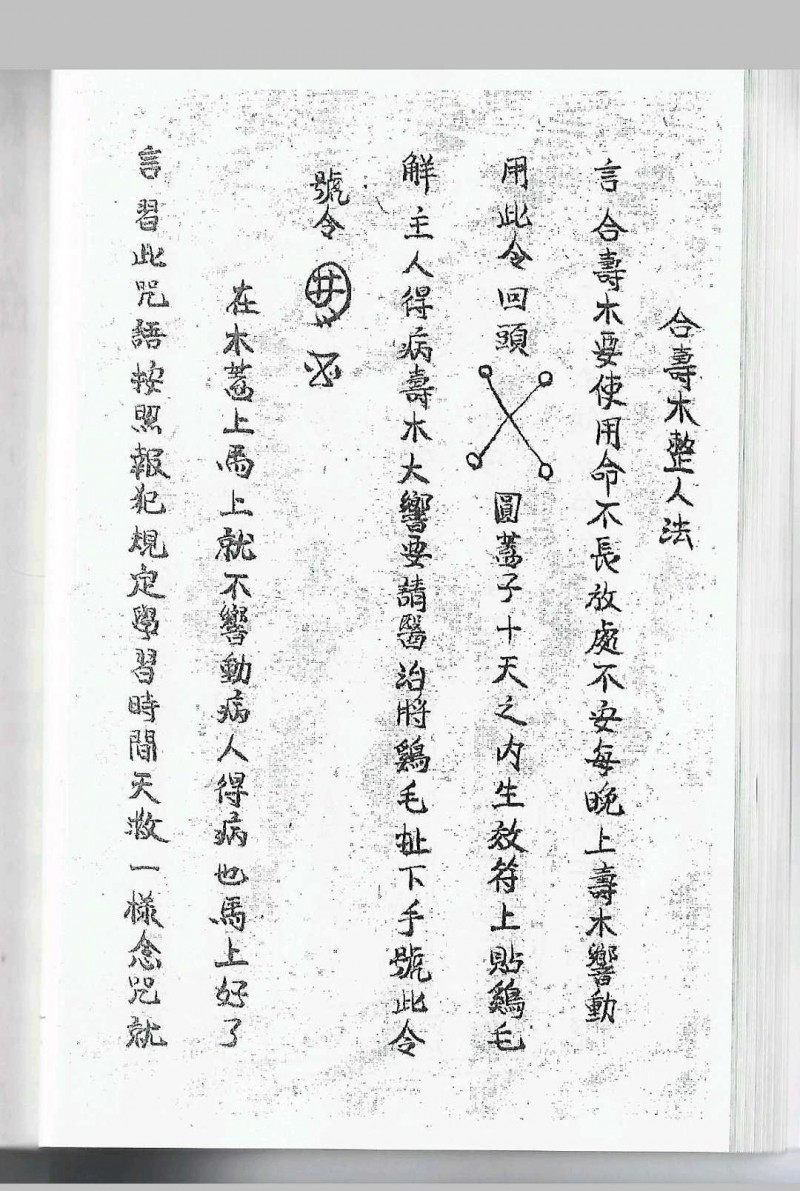 合壽木整人法
言合壽木要使用命不長放處不安每晚上壽木響動
用此令回頭 圓蓋子十天之內生效符上貼鷄毛
解主人得病壽木大響要請醫治將鷄毛扯下手號此令
號令
在木蓋上馬上就不響動病人得病也馬上好了
言習此咒語按照報犯規定學習時間天救一樣念咒就